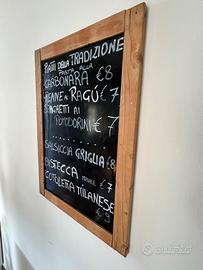 PIATTI DELLA TRADIZIONE
PASTA ALLA
CARBONARA €8
PENNE AL RAGÚ €7
SPAGHETTI AI
POMODORINI €7
SALSICCIA GRIGLIA €8
BISTECCA MAIALE €7
COTOLETTA MILANESE
€9
subito.it